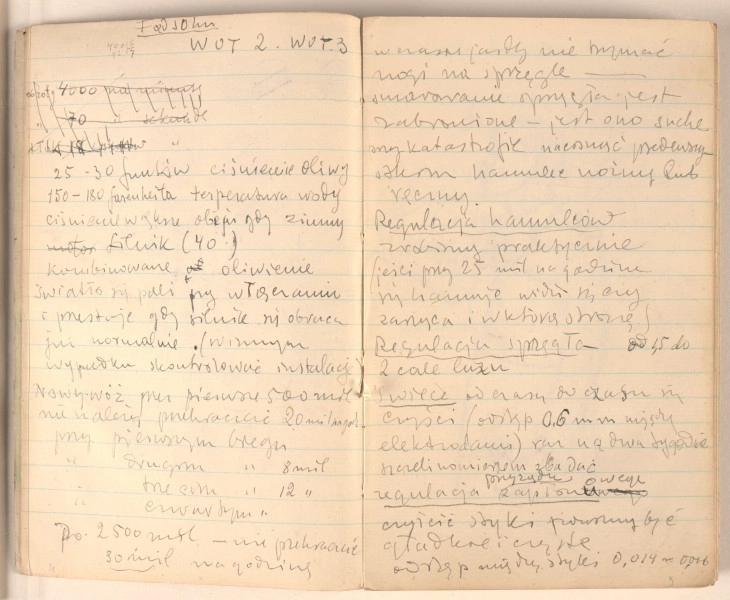 WOT 2. WOT.3
4000
70 a sekundę
25-30 funtów ciśnienie oliwy
150-180 farenheita temperatura wody
ciśnienie większe oleju gdy zimny
silnik (40.)
kombinowane oliwienie
Światło się pali przy włączeniu
i przestaje gdy silnik się obraca
już normalnie. (w innym
wypadku skontrolować instalację
Nowy wóz przez pierwsze 500 mil
nie należy przekraczać 20 mil/godz
przy pierwszym biegu
" drugim " 8 mil
" trzecim " 12 "
" czwartym "
Po. 2500 mil – nie przekraczać
30 mil na godzinę
w czasie jazdy nie trzymać
nogi na sprzęgle
smarowanie sprzęgła jest
zabronione – jest ono suche
przy katastrofie nacisnąć
hamulec nożny lub
ręczny.
Regulacja hamulców
zrobimy praktycznie
(jeśli przy 25 mil na godzinę
się hamuje widzi się czy
zarzuca i w którą stronę)
Regulacja sprzęgła – od 1,5 do
2 cale luzu
Świece od czasu do czasu się
czyści (odstęp 0,6 mm między
elektrodami) raz na dwa tygodnie
szczelinomierzem zbadać
regulacja przyrządu zapłonowego
czyścić styki powinny być
gładkie i czyste
odstęp między styki 0,014 – 0,016